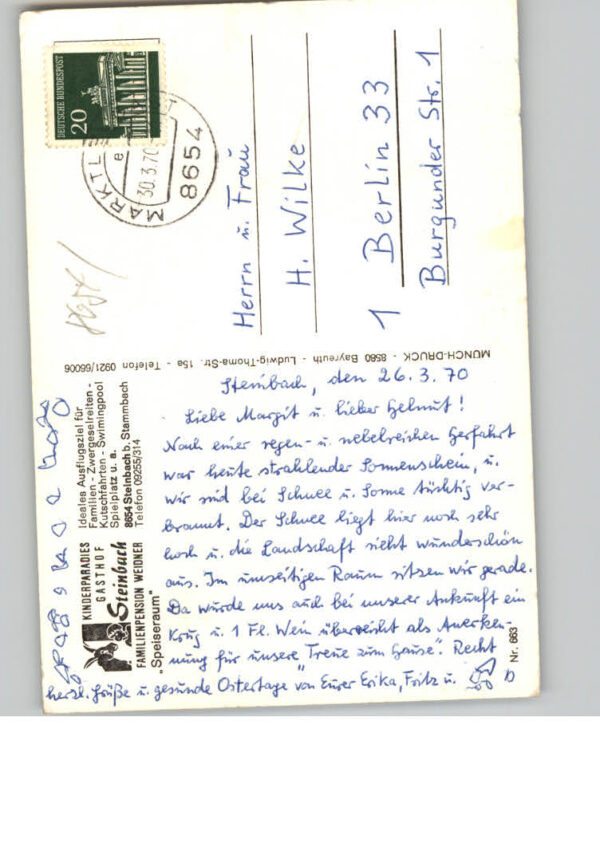 DEUTSCHE BUNDESPOST
20
30.3.70
8654
Herrn u. Frau
H. Wilke
1 Berlin 33
Burgunder Str. 1
MÜNCH-DRUCK · 8580 Bayreuth · Ludwig-Thoma-Str. 15a · Telefon 0921/65006
KINDERPARADIES
GASTHOF
Steinbach
FAMILIENPENSION WEIDNER
"Speiseraum"
Ideales Ausflugsziel für
Familien - Zwergeselreiten -
Kutschfahrten - Swimingpool
Spielplatz u. a.
8654 Steinbach b. Stammbach
Telefon 09255/314
Nr. 663
Steinbach, den 26.3.70
Liebe Margit u. lieber Helmut!
Nach einer regen- u. nebelreichen Herfahrt
war heute strahlender Sonnenschein, u.
wir sind bei Schnee u. Sonne tüchtig ver-
brannt. Der Schnee liegt hier noch sehr
hoch u. die Landschaft sieht wunderschön
aus. Im umseitigen Raum sitzen wir gerade.
Da wurde uns auch bei unserer Ankunft ein
Krug u. 1 Fl. Wein überreicht als Anerken
nung für unsere "Treue zum Hause". Recht
herzl. Grüße u. gesunde Ostertage von Eurer Erika, Fritz u.